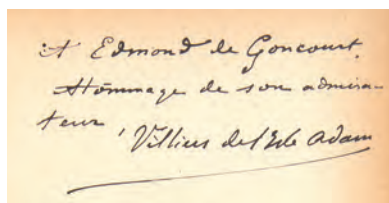 A Edmond de Goncourt.
Hommage de son admira-
teur,
Villiers de l'Isle Adam